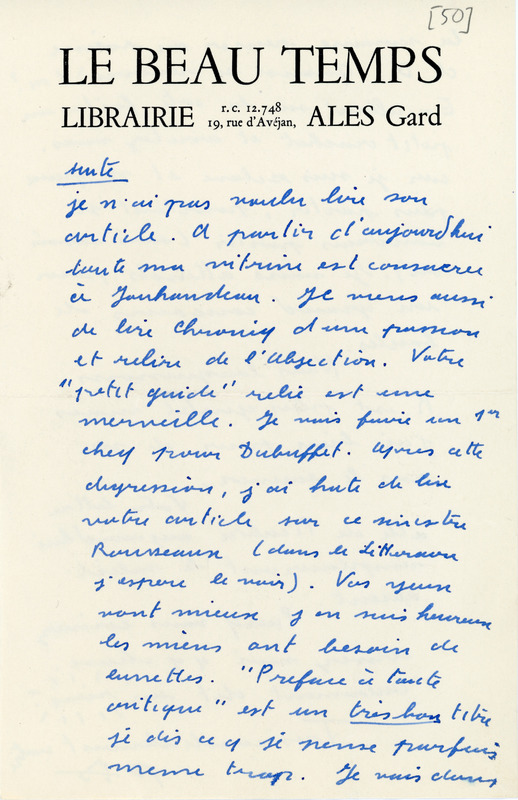 [50]
LE BEAU TEMPS
LIBRAIRIE r.c. 12.748 19, rue d'Avéjan, ALES Gard
suite
je n'ai pas voulu lire son
article. A partir d'aujourd'hui
toute ma vitrine est consacree
à Jouhandeau. Je viens aussi
de lire Chroniq d'une passion
et relire de l'Abjection. Votre
"petit guide" relié est une
merveille. Je vais faire un 1er
cheq pour Dubuffet. Apres cette
digression, j'ai hate de lire
votre article sur ce sinistre
Rousseaux (dans le Litteraire
j'espere le voir). Vos yeux
vont mieux j'en suis heureux
les miens ont besoin de
lunettes. "Preface à toute
critique" est un tres bon titre
je dis ce q je pense parfois
meme trop. Je vais dans